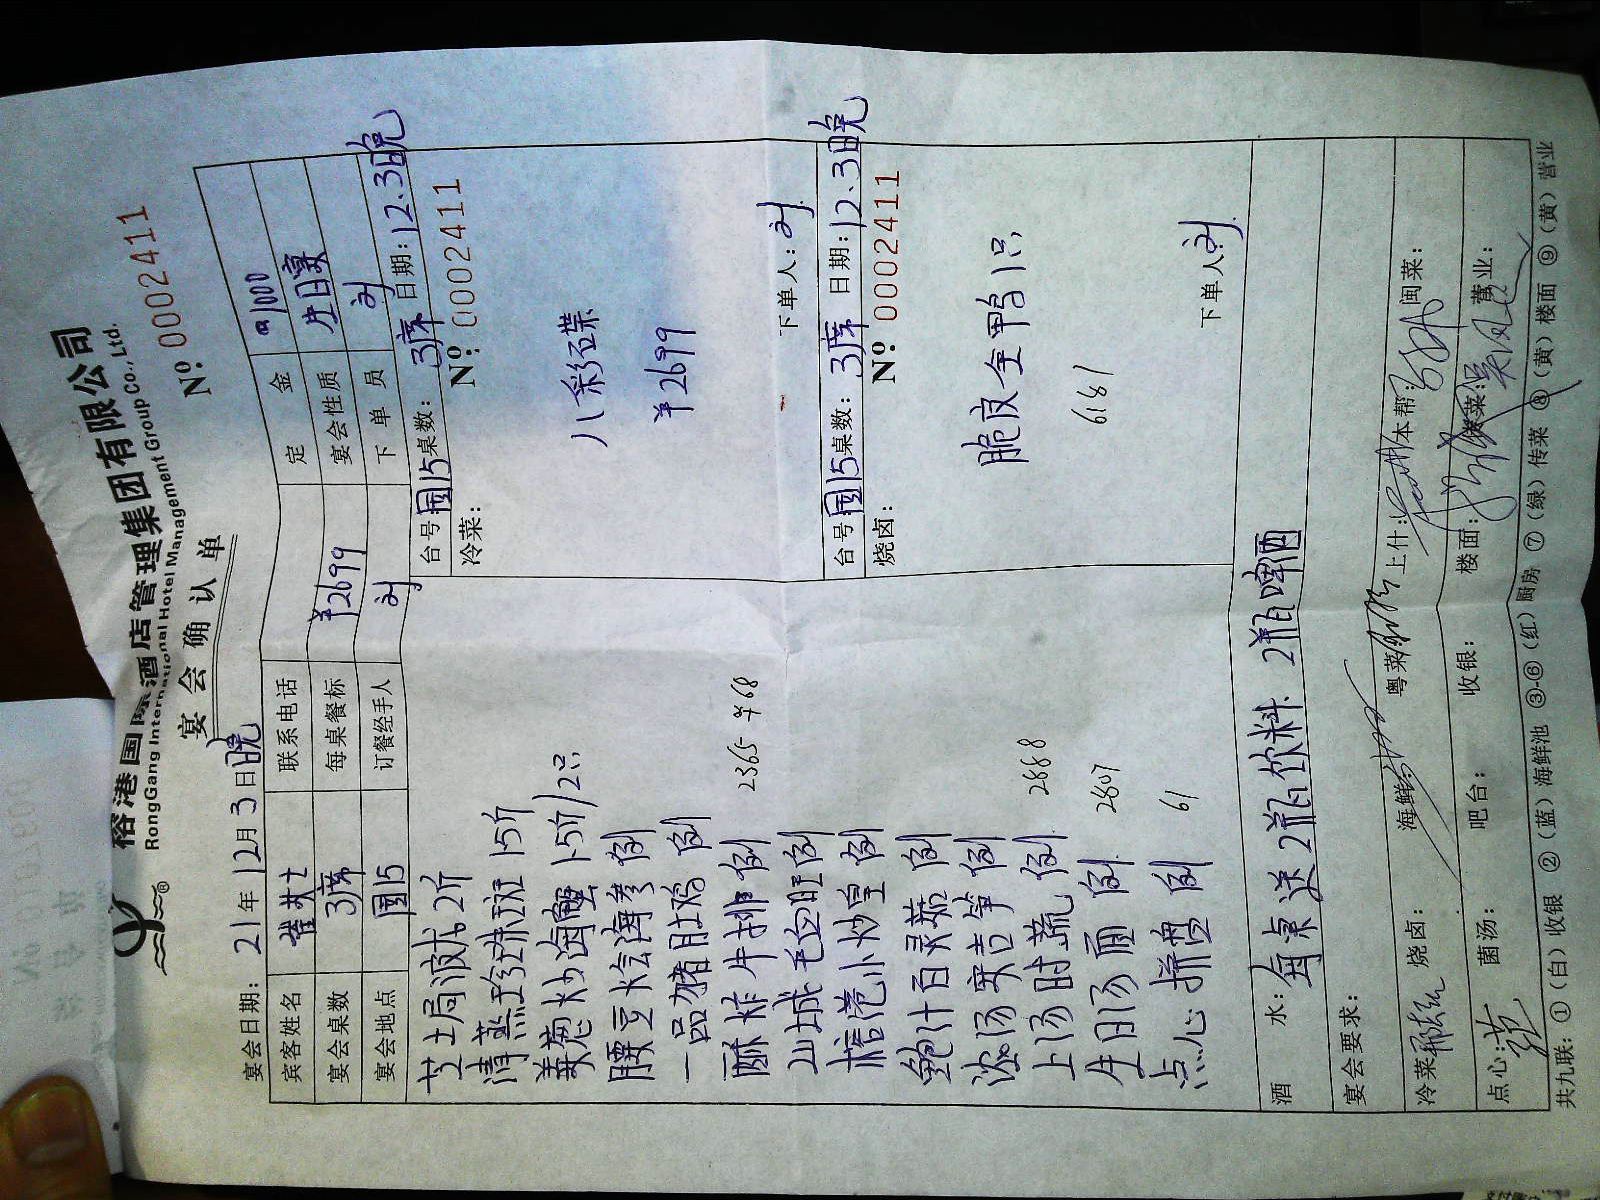 榕港国际酒店管理集团有限公司
RongGang International Hotel Management Group Co., Ltd.
宴会确认单
№ 0002411
宴会日期: 21年12月3日晚
宾客姓名 联系电话 定金 1000
宴会桌数 3席 每桌餐标 ¥2699 宴会性质 生日宴
宴会地点 国15 订餐经手人 刘 下单员 刘
芝士焗波龙 2斤
清蒸珍珠斑 1.5斤
姜葱炒海蟹 1.5斤/2只
腰豆烩海参 例
一品猪肚鸡 例
酥炸牛排 例 2365
山城毛血旺 例
榕港小炒皇 例
鲍汁百灵菇 例
浓汤娄吉笋 例
上汤时蔬 例 2888
生日汤面 例 2807
点心拼盘 例 61
台号: 国15 桌数: 3席 日期: 12.3晚
冷菜: № 0002411
八彩碟
¥2699
下单人: 刘
台号: 国15 桌数: 3席 日期: 12.3晚
烧卤: № 0002411
脆皮全鸭1只
6181
下单人: 刘
酒水: 每桌送2瓶饮料 2瓶啤酒
宴会要求:
冷菜: 烧卤: 海鲜: 粤菜: 上什: 本帮: 闽菜:
点心: 菌汤: 吧台: 收银: 楼面: 传菜: 营业:
共九联: ①(白)收银 ②(蓝)海鲜池 ③-⑥(红)厨房 ⑦(绿)传菜 ⑧(黄)楼面 ⑨(黄)营业